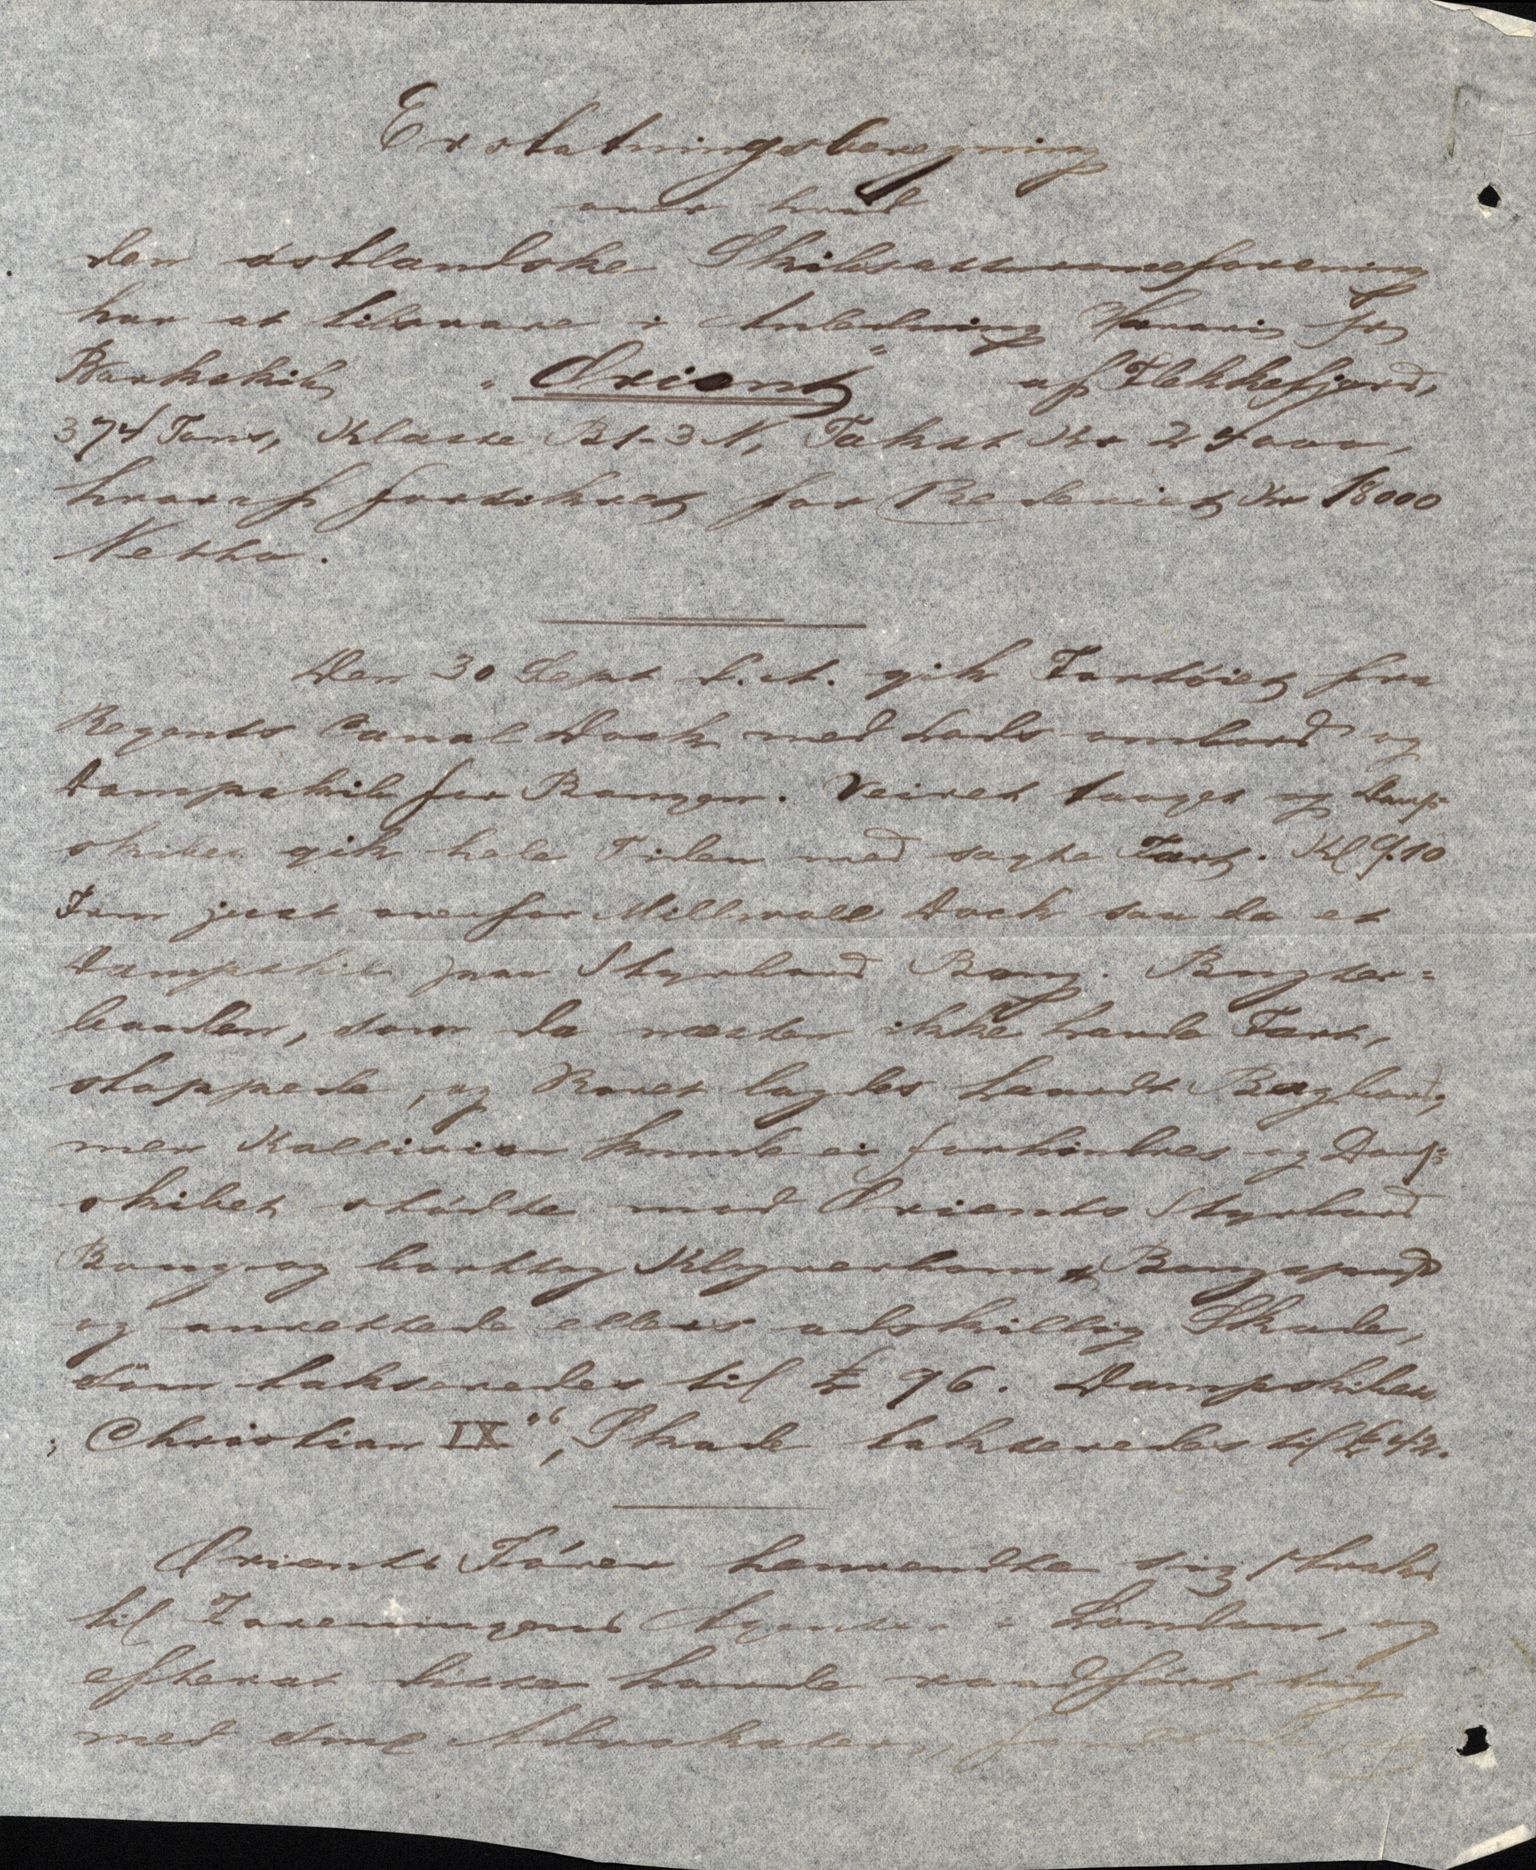 Erstatningsberegning
over hvad
den østlandske Skibsassuranceforening
har at tilsvare i Anledning Havari paa
Barkskib „Orient“ af Flekkefjord,
374 Tons, Klasse B1-3 N, Takst Kr 24000,
hvoraf forsikret for Rederiet Kr 18000
Netto.
Den 30 Sept d.A. gik Fartøiet fra
Regents Canal Dock med Lods ombord og
Dampskib for Bougen. Veiret taaget og Damp-
skibet gik hele Tiden med sagte Fart. Kl 9.10
Fm just ovenfor Millwall Dock saa da et
Dampskib paa Styrbord Boug. Bugser=
baaden, som da næsten ikke havde Fart,
stoppede, og Roret lagdes haardt Bagbord,
men Kollision kunde ei forhindres og Damp=
skibet stødte mod Orients Styrbord
Boug og borttog Klyverbom & Bougspryd
og anrettede ellers adskillig Skade,
som takseredes til £ 96. Dampskibet
„Christian IX“, Skade takseredes til £ 42.
Orients Fører henvendte sig straks
til Foreningens Agenter i London, og
efterat disse havde raadført sig
med sine Advokater, fandt